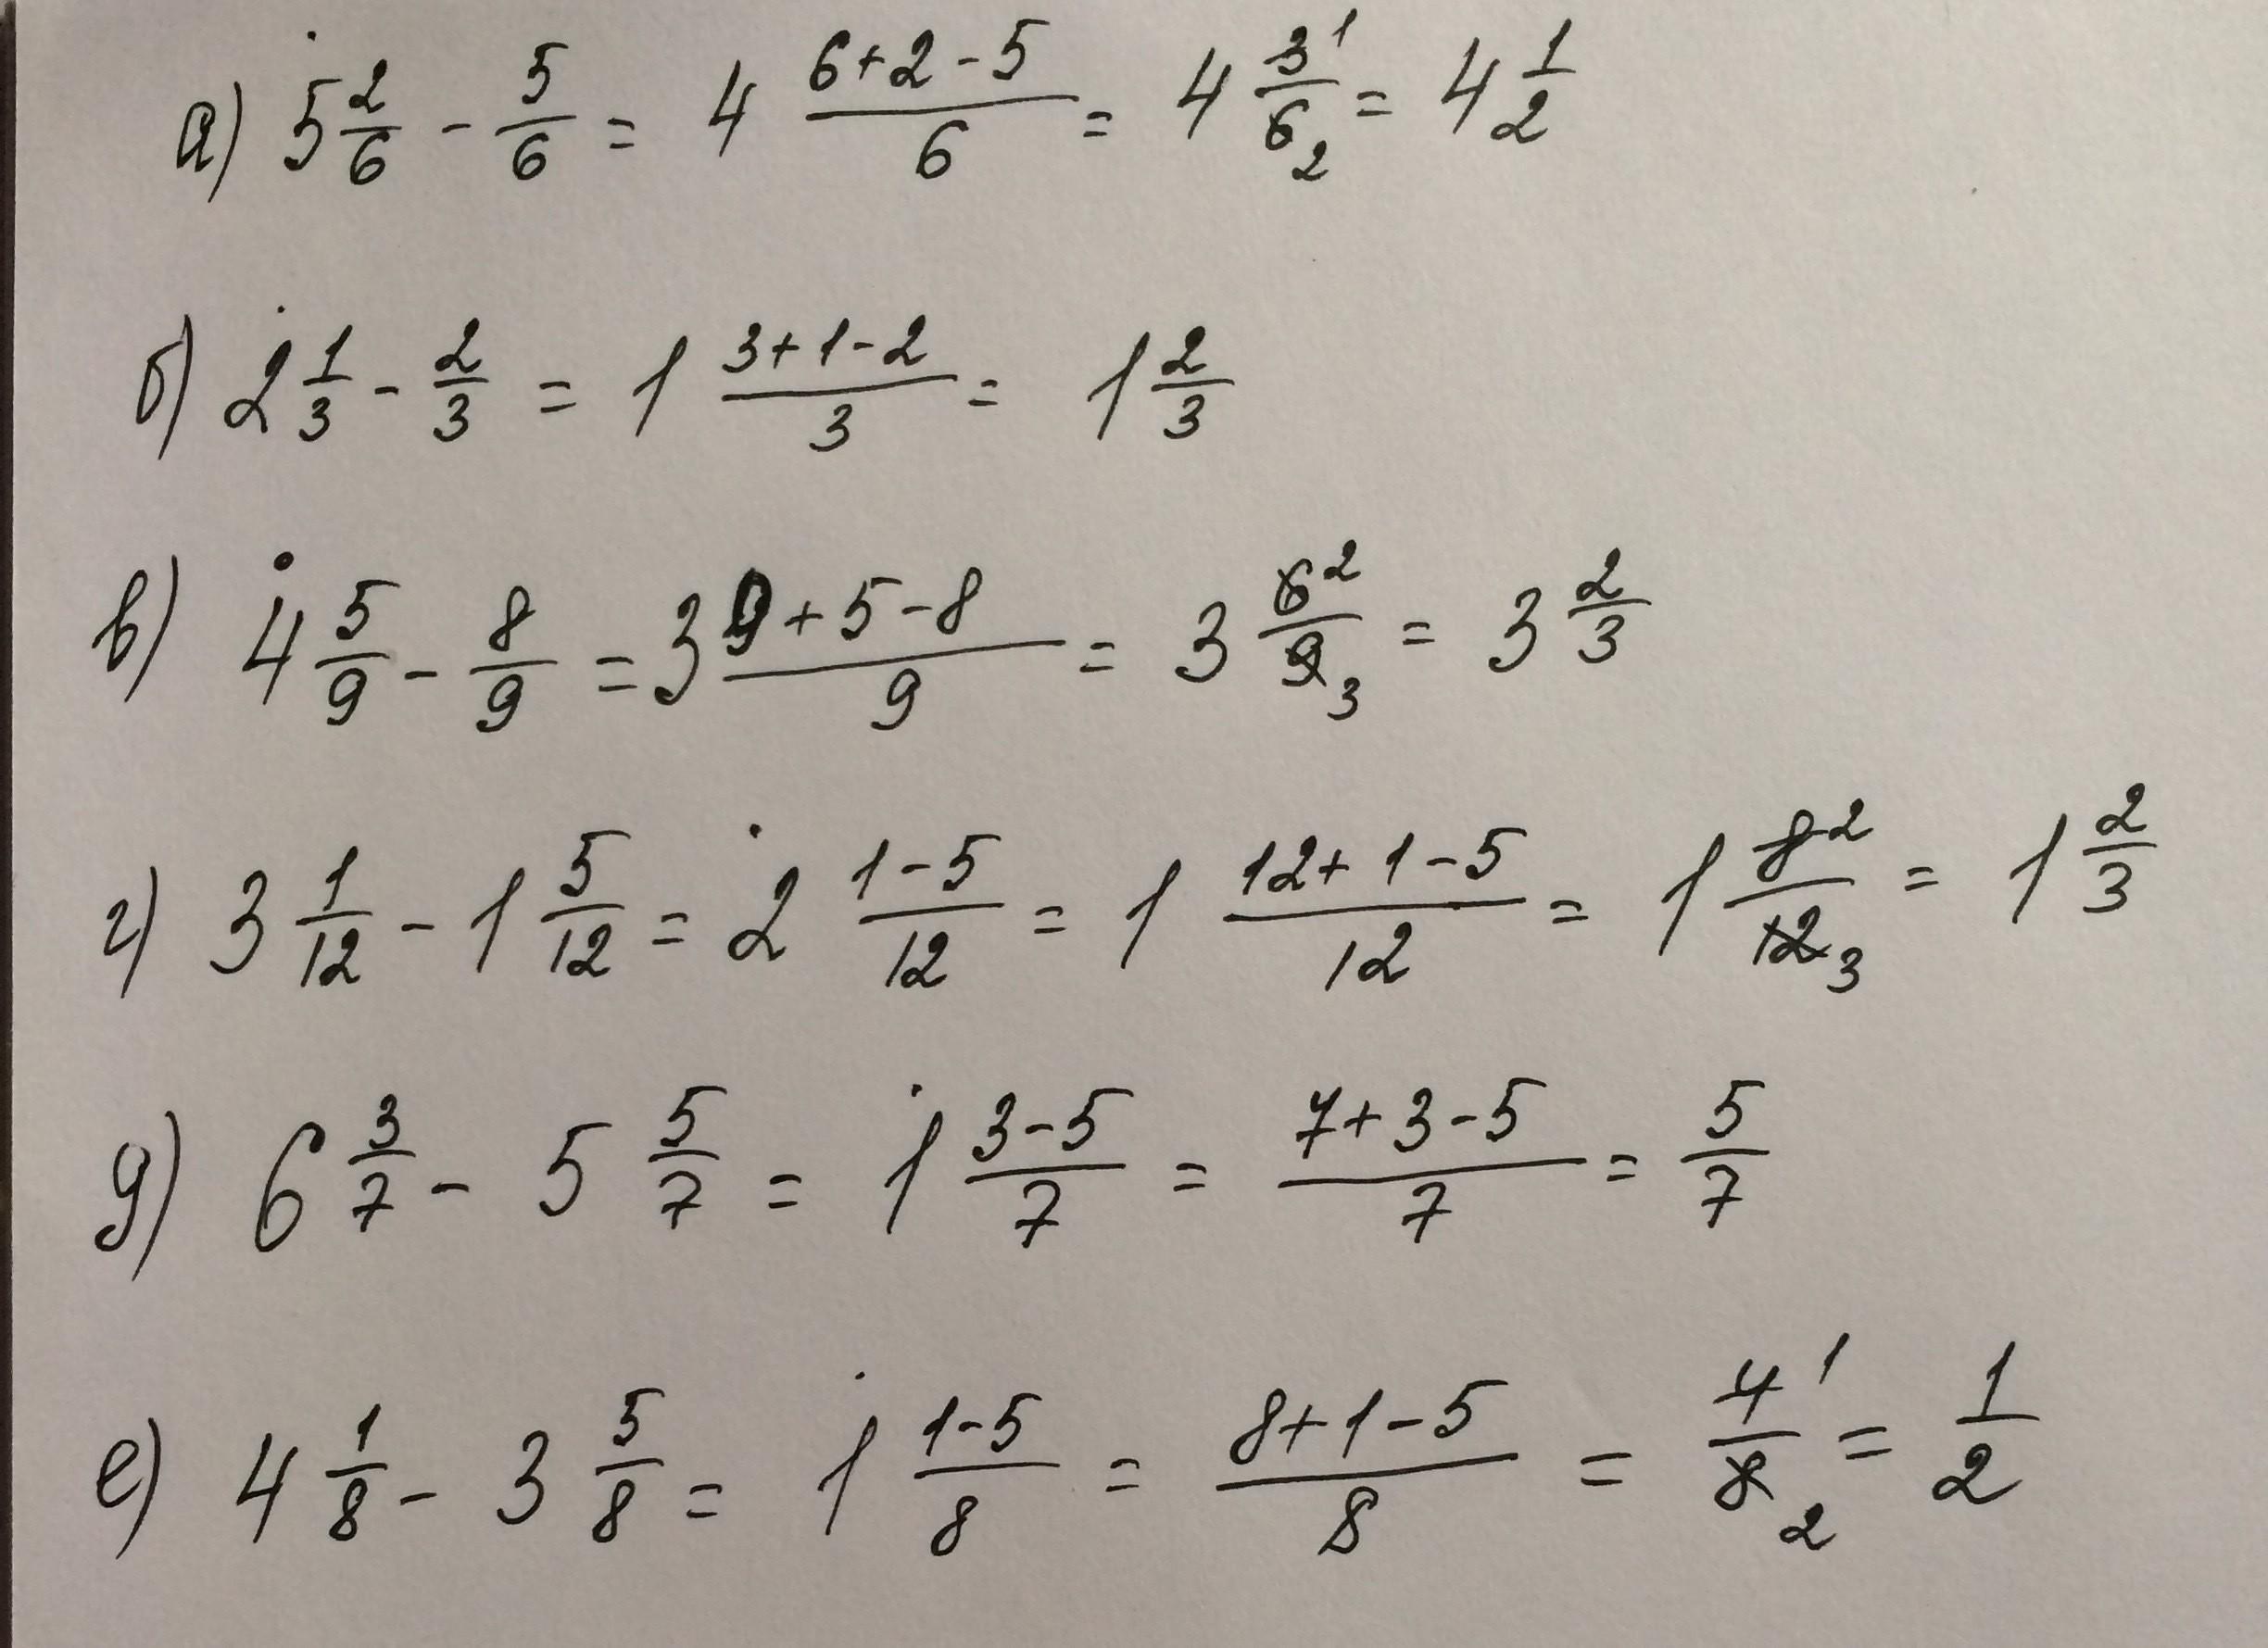 а) 5 2/6 - 5/6 = 4 (6+2-5)/6 = 4 3¹/6₂ = 4 1/2
б) 2 1/3 - 2/3 = 1 (3+1-2)/3 = 1 2/3
в) 4 5/9 - 8/9 = 3 (9+5-8)/9 = 3 6²/9₃ = 3 2/3
г) 3 1/12 - 1 5/12 = 2 (1-5)/12 = 1 (12+1-5)/12 = 1 8²/12₃ = 1 2/3
д) 6 3/7 - 5 5/7 = 1 (3-5)/7 = (7+3-5)/7 = 5/7
е) 4 1/8 - 3 5/8 = 1 (1-5)/8 = (8+1-5)/8 = 4¹/8₂ = 1/2